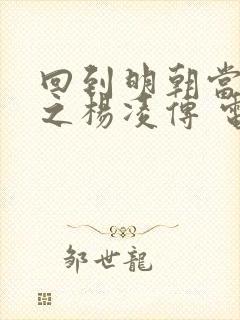 回到明朝當
之楊凌傳
邹世龍